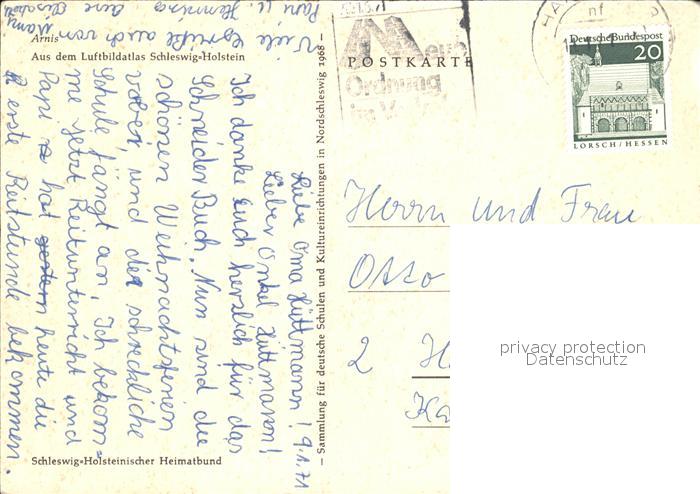 Arnis
Aus dem Luftbildatlas Schleswig-Holstein
Liebe Oma Hüttmann! 9.1.71
Lieber Onkel Hüttmann!
Ich danke Euch herzlich für das
Schneider Buch. Nun sind die
schönen Weihnachtsferien
vorbei, und die schreckliche
Schule fängt an. Ich bekom-
me jetzt Reitunterricht und
Papi hat gestern heute die
erste Reitstunde bekommen.
Viele Grüße auch von Mamy
Papi u. Hennina
Eure Elisabeth
Schleswig-Holsteinischer Heimatbund
— Sammlung für deutsche Schulen und Kultureinrichtungen in Nordschleswig 1968 —
POSTKARTE
Neue
Ordnung
im
Deutsche Bundespost
20
LORSCH/HESSEN
nf
Herrn und Frau
Otto
2 H
Ka
privacy protection
Datenschutz